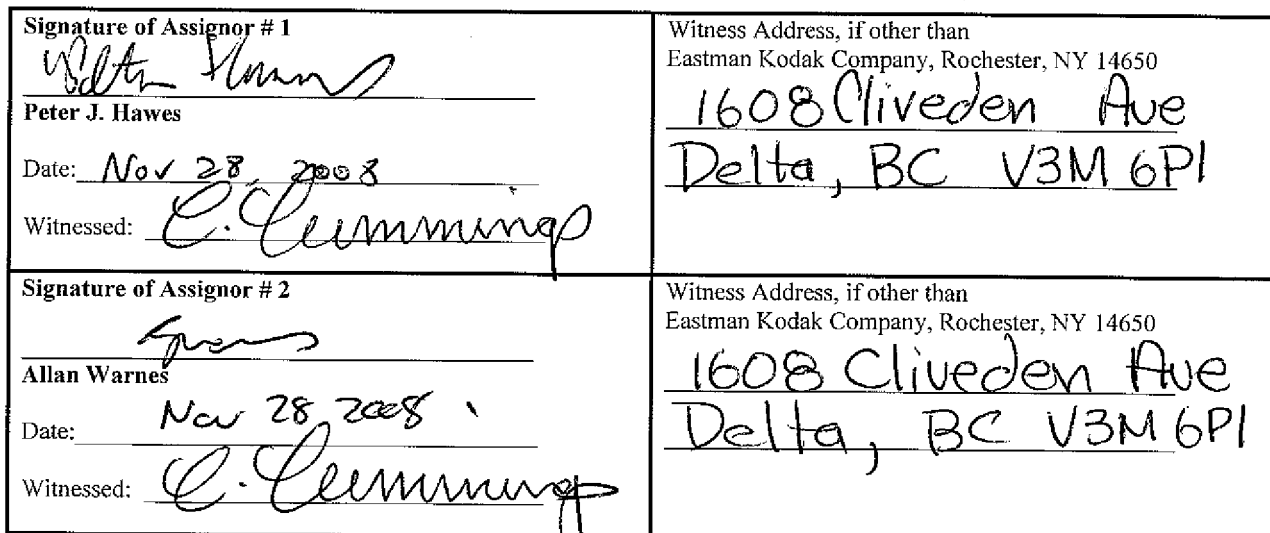 Signature of Assignor # 1
Peter J. Hawes
Date: Nov 28, 2008
Witnessed: C. Cummings
Witness Address, if other than
Eastman Kodak Company, Rochester, NY 14650
1608 Cliveden Ave
Delta, BC V3M 6P1
Signature of Assignor # 2
Allan Warnes
Date: Nov 28 2008
Witnessed: C. Cummings
Witness Address, if other than
Eastman Kodak Company, Rochester, NY 14650
1608 Cliveden Ave
Delta, BC V3M 6P1